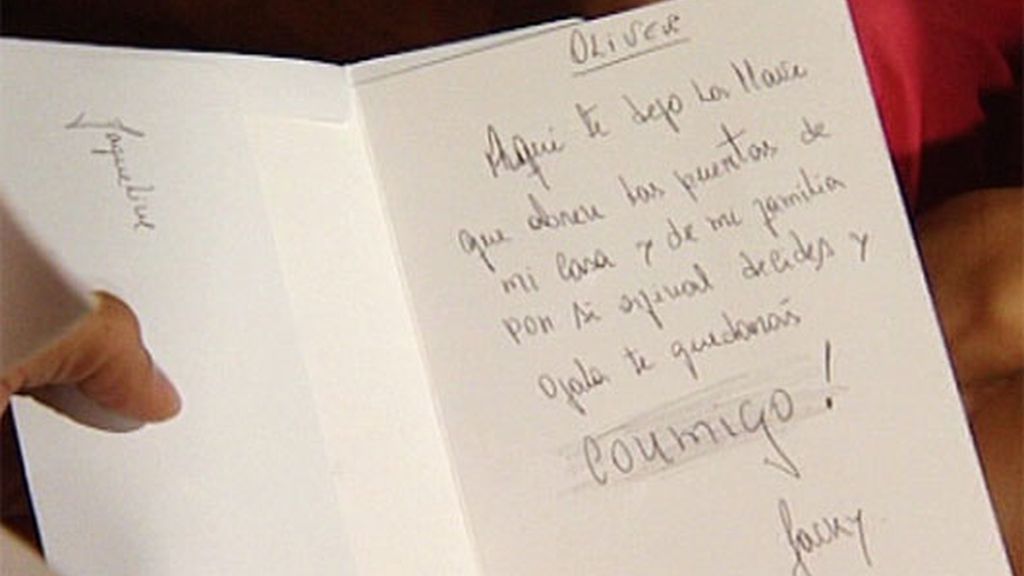 Jaqueline
OLIVER
Aqui te dejo la llave
que abren las puertas de
mi casa y de mi familia
por si afinal decides y
ojala te quedaras
Conmigo!
Jacky